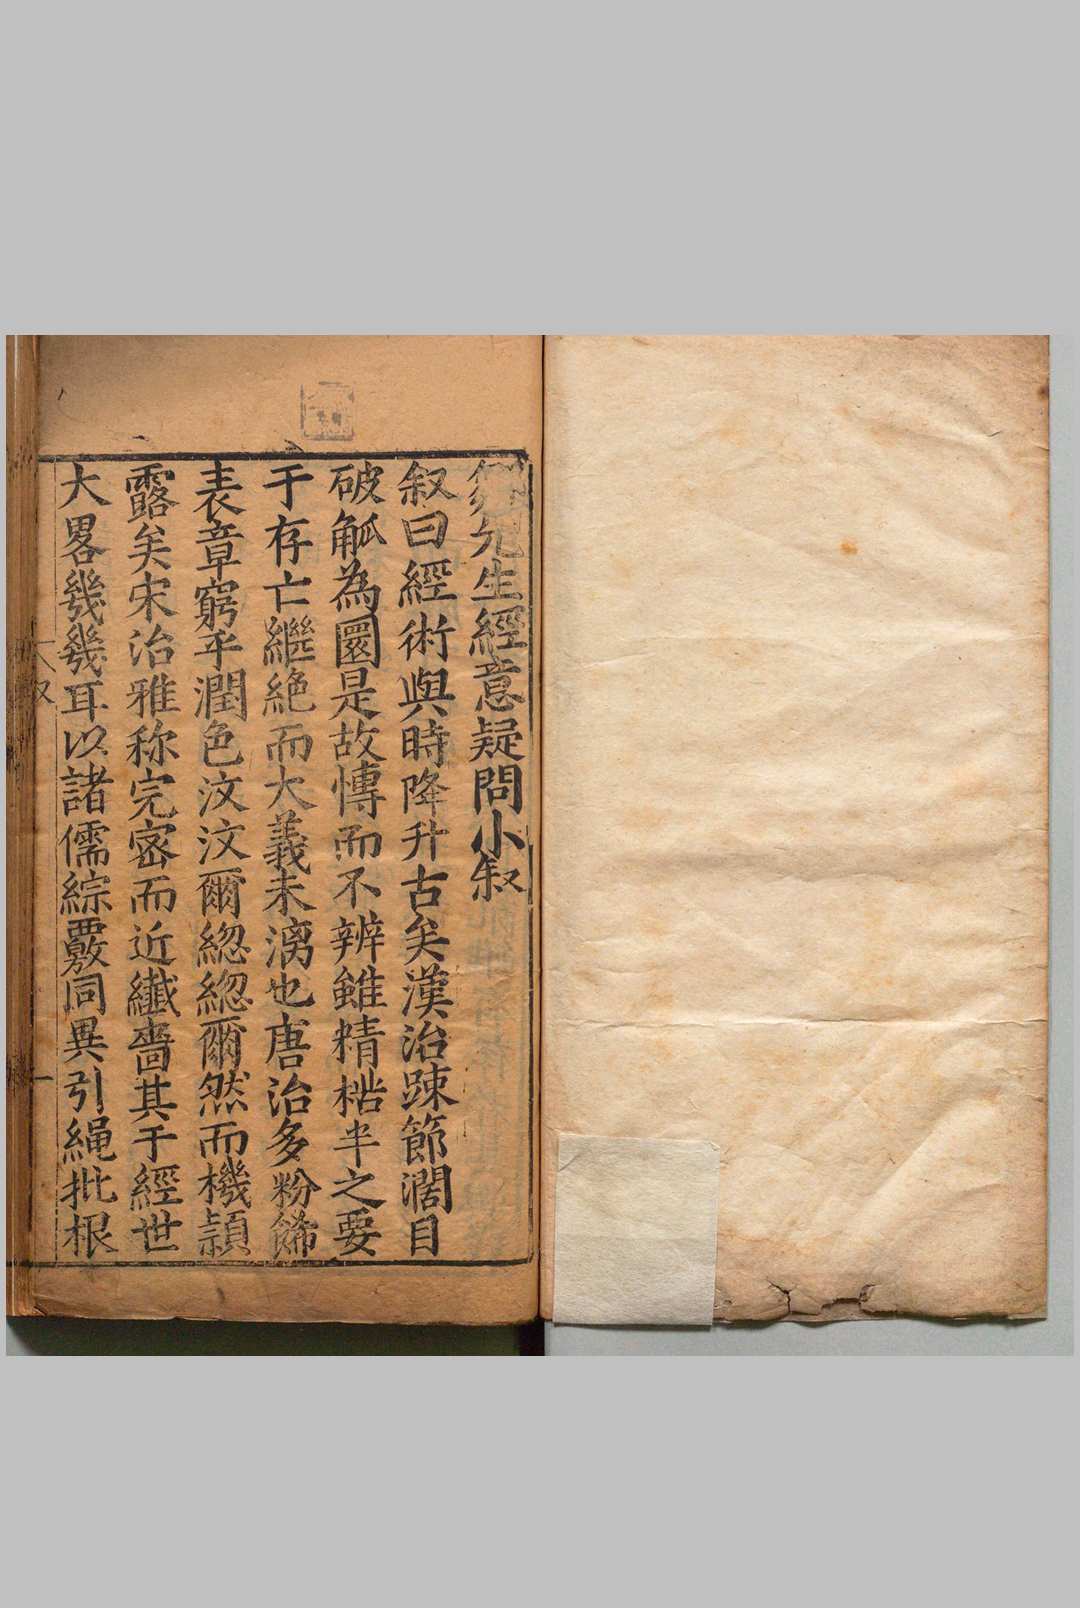 先生經意疑問小叙
叙曰經術與時降升古矣漢治踈節濶目
破觚為圜是故慱而不辨雖精楛半之要
于存亡繼絶而大義未漓也唐治多粉餙
表章窮乎潤色汶汶爾緫緫爾然而機頴
露矣宋治雅称完宻而近纎嗇其于經世
大畧幾幾耳以諸儒綜覈同異引䋲批根
叙
一